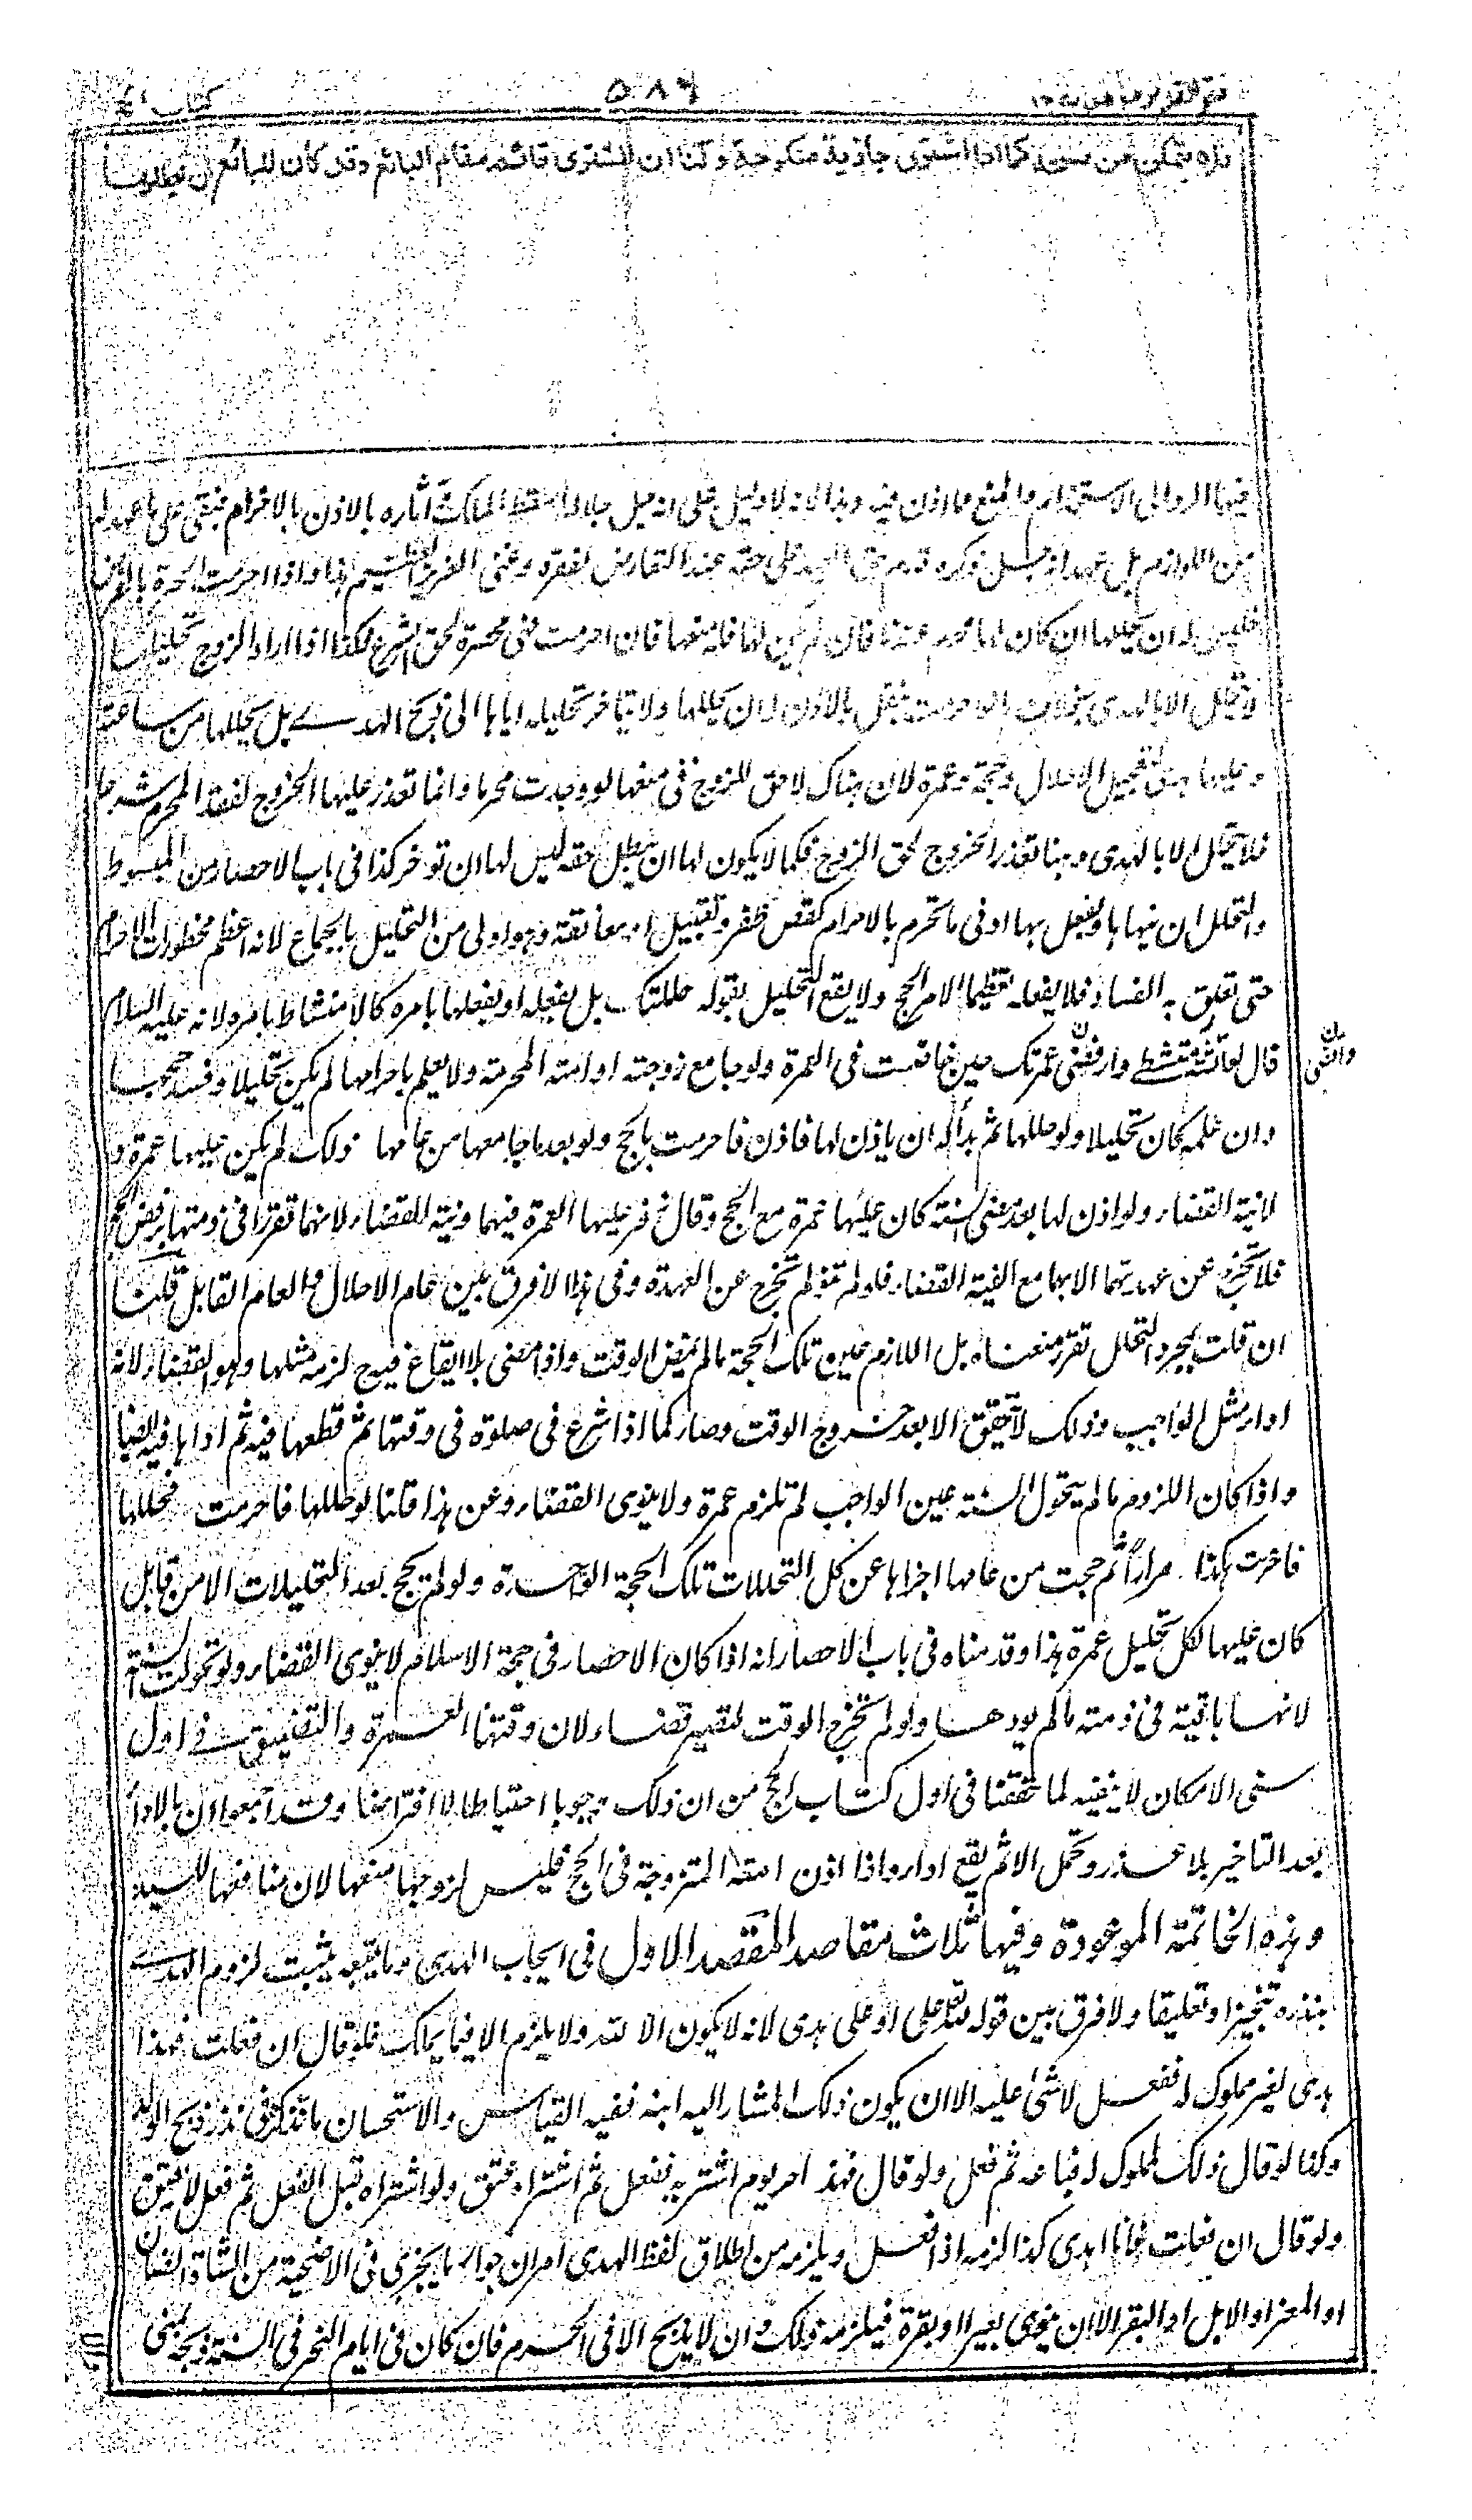 كتاب
٥٨٦
كما اذا اشترى جارية منكوحة ولنا ان المشترى قائم مقام البائع وقد كان للبائع ان يحللها
على انه بالاذن بالاحرام فبقى على ما عهد له
من اللوازم بل عهد عند التعارض لفقره وغنى واذا احرمت الحرة بالفرض
فليس له ان يحللها ان كان لها محرم عندنا فان لم يكن لها فله منعها فان احرمت فهى محصرة لحق الشرع فلذا اذا اراد الزوج تحليلها
لا تتحلل الا بالهدى بخلاف ما لو احرمت بنفل بلا اذن له ان يحللها ولا يتاخر تحليله اياها الى ذبح الهدى بل يحللها من ساعته
وعليها هدى لتعجيل الاحلال وحجة وعمرة لان هناك لا حق للزوج فى منعها لو وجدت محرما وانما تعذر عليها الخروج لفقد المحرم شرعا
فلا تحل الا بالهدى وهنا تعذر الخروج لحق الزوج فكما لا يكون لها ان تبطل حقه ليس لها ان توخر كذا فى باب الاحصار من المبسوط
والتحلل ان ينهاها ويفعل بها ادنى ما تحرم بالاحرام كقص ظفر وتقبيل او معانقة وهو اولى من التحليل بالجماع لانه اعظم محظورات الاحرام
حتى تعلق به الفساد فلا يفعله تعظيما لامر الحج ولا يقع التحليل بقوله حللتك بل بفعله او بفعلها بامره كالامتشاط بامره لانه عليه السلام
قال لعائشة امتشطى وارفضى عمرتك حين حاضت فى العمرة ولو جامع زوجته او امته المحرمة ولا يعلم باحرامها لم يكن تحليلا وفسد حجها
وان علمه كان تحليلا ولو حللها ثم بدا له ان ياذن لها فاذن فاحرمت بالحج ولو بعد ما جامعها من عامها ذلك لم يكن عليها عمرة و
لا نية القضاء ولو اذن لها بعد مضى السنة كان عليها عمرة مع الحج وقال زفر عليها العمرة فيهما ونية للقضاء لانهما تقررا فى ذمتها برفض الحج
فلا تخرج عن عهدتهما الا بهما مع النية القضاء فلو لم تنو لم تخرج عن العهدة وفى هذا لا فرق بين عام الاحلال والعام القابل قلنا
ان قلت بمجرد التحلل تقرر منعناه بل اللازم عين تلك الحجة ما لم يمض الوقت واذا مضى بلا ايقاع فيه ح لزم مثلها وهو القضاء لانه
اداء مثل الواجب وذلك لا يتحقق الا بعد خروج الوقت وصار كما اذا شرع فى صلوة فى وقتها ثم قطعها فيه ثم اداها فيه ايضا
واذا كان اللزوم ما لم يتحول السنة عين الواجب لم تلزم عمرة ولا ينوى القضاء وعن هذا قلنا لو حللها فاحرمت فحللها
فاحرمت هكذا مرارا ثم حجت من عامها اجزاها عن كل التحللات تلك الحجة الواحدة ولو لم تحج بعد التحليلات الا من قابل
كان عليها لكل تحليل عمرة هذا وقد مناه فى باب الاحصار انه اذا كان الاحصار فى حجة الاسلام لا ينوى القضاء ولو تحولت السنة
لانها باقية فى ذمته ما لم يودها ولو لم تخرج الوقت لتصير قضاء لان وقتها العمر والتضييق فى اول
سنى الامكان لا ينفيه لما حققنا فى اول كتاب الحج من ان ذلك وجوبا احتياطا لا افتراضا وقد اجمعوا ان بالاداء
بعد التاخير بلا عذر وتحمل الاثم يقع اداء واذا اذن لامته المتزوجة فى الحج فليس لزوجها منعها لان منافعها للسيد
وهذه الخاتمة الموعودة وفيها ثلاث مقاصد المقصد الاول فى ايجاب الهدى وما يتبعه يثبت لزوم الهدى
بنذره تنجيزا وتعليقا ولا فرق بين قوله لله على او على هدى لانه لا يكون الا لله ولا يلزم الا فيما يملك فلو قال ان فعلت فهذا
هدى لغير مملوك له ففعل لا شئ عليه الا ان يكون ذلك المشار اليه ابنه ففيه القياس والاستحسان ما نذكر فى نذر ذبح الولد
وكذا لو قال ذلك لمملوك له فباعه ثم فعل ولو قال فهذا حر يوم اشتريه ففعل ثم اشتراه عتق ولو اشتراه قبل الفعل ثم فعل لا يعتق
ولو قال ان فعلت فانا اهدى كذا لزمه اذا فعل ويلزمه من اطلاق لفظ الهدى امران جواز ما يجزى فى الاضحية من الشاة الضان
او المعز او الابل او البقر الا ان ينوى بعيرا او بقرة فيلزمه ذلك وان لا يذبح الا فى الحرم فان كان فى ايام النحر فى السنة ذبحه بمنى